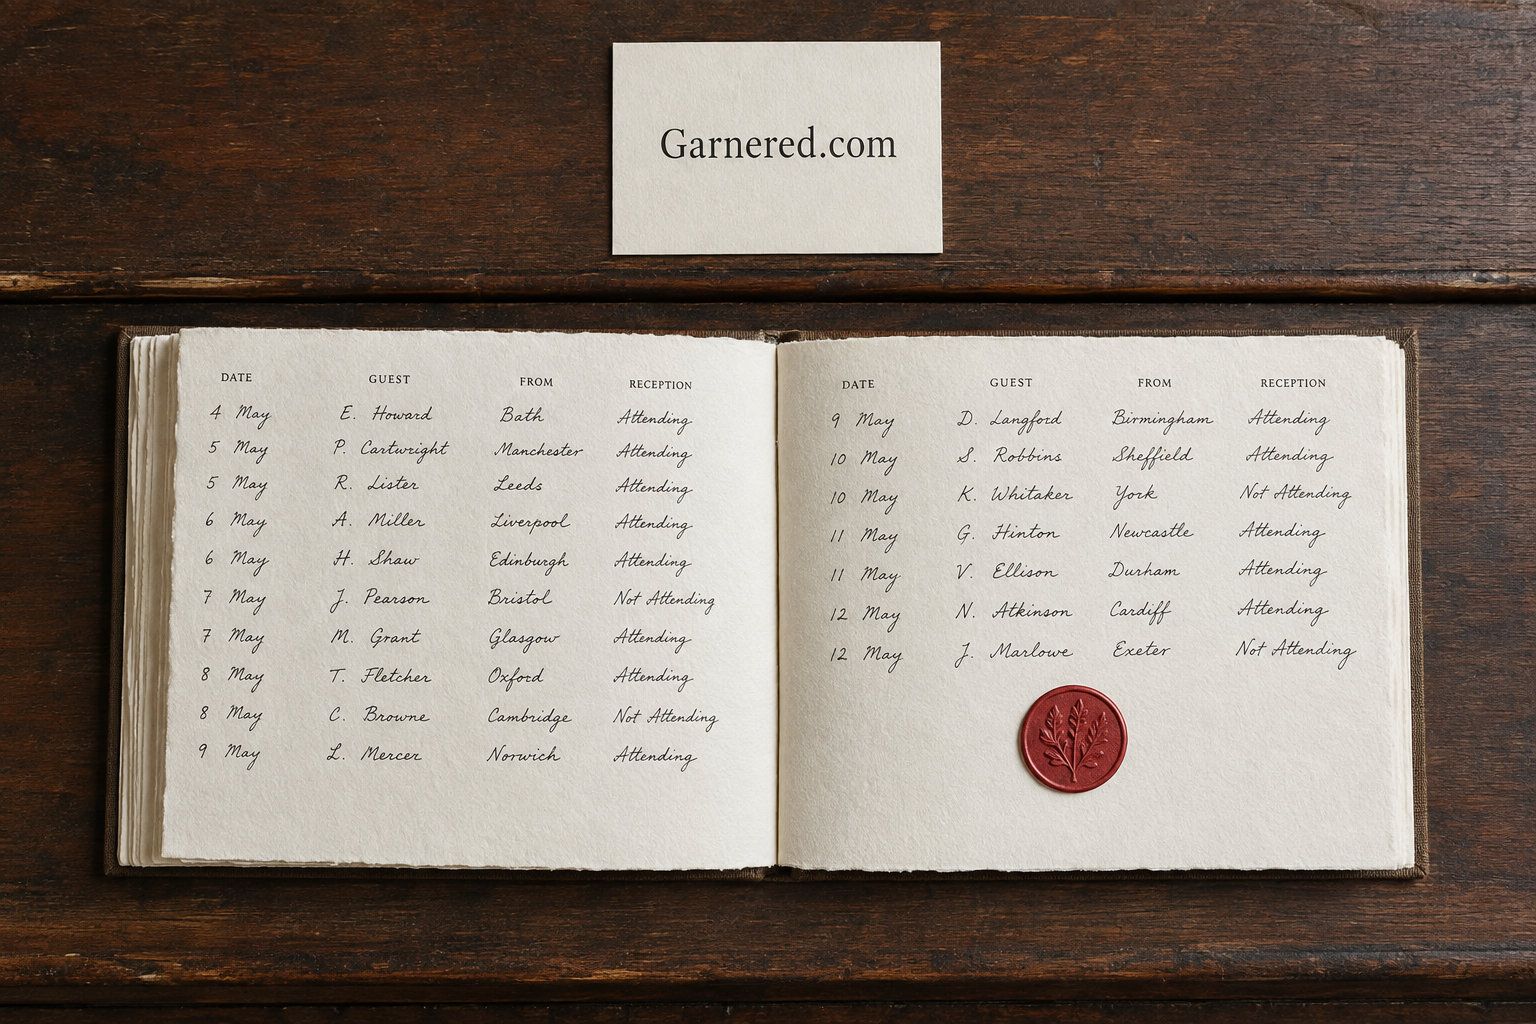 Garnered.com
DATE GUEST FROM RECEPTION
4 May E. Howard Bath Attending
5 May P. Cartwright Manchester Attending
5 May R. Lister Leeds Attending
6 May A. Miller Liverpool Attending
6 May H. Shaw Edinburgh Attending
7 May J. Pearson Bristol Not Attending
7 May M. Grant Glasgow Attending
8 May T. Fletcher Oxford Attending
8 May C. Browne Cambridge Not Attending
9 May L. Mercer Norwich Attending
DATE GUEST FROM RECEPTION
9 May D. Langford Birmingham Attending
10 May S. Robbins Sheffield Attending
10 May K. Whitaker York Not Attending
11 May G. Hinton Newcastle Attending
11 May V. Ellison Durham Attending
12 May N. Atkinson Cardiff Attending
12 May J. Marlowe Exeter Not Attending